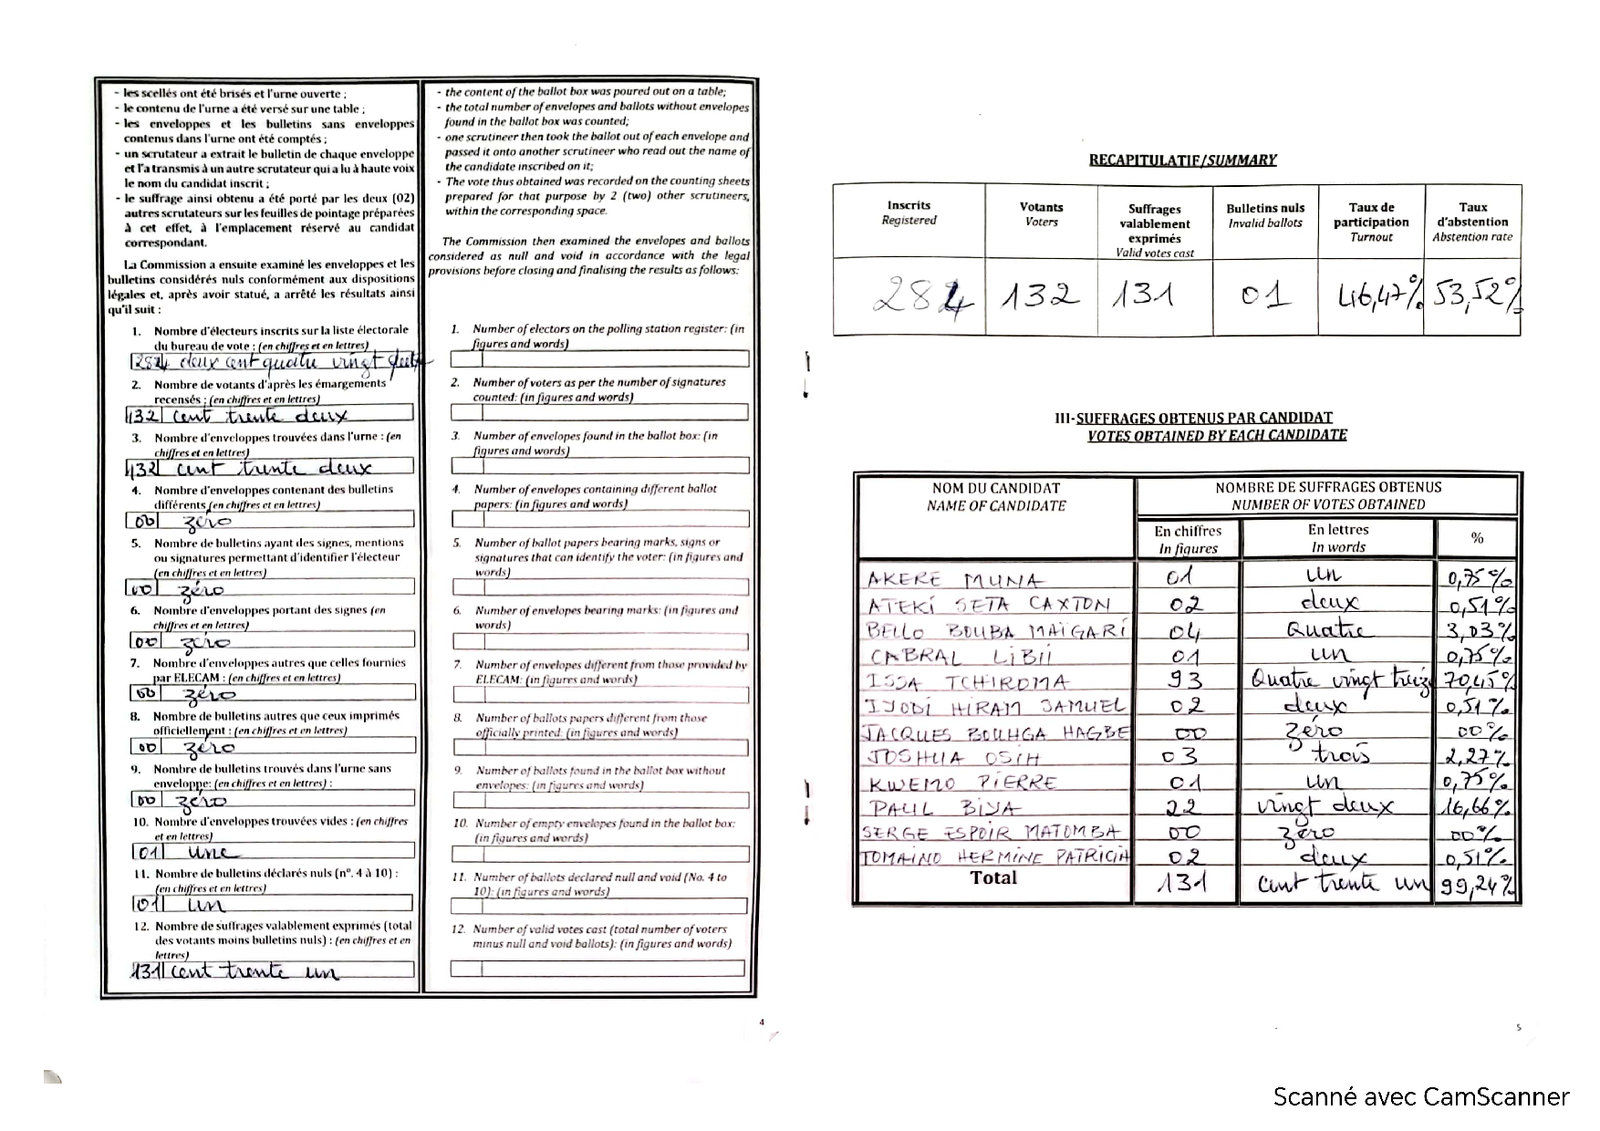 - les scellés ont été brisés et l'urne ouverte ;
- le contenu de l'urne a été versé sur une table ;
- les enveloppes et les bulletins sans enveloppes
contenus dans l'urne ont été comptés ;
- un scrutateur a extrait le bulletin de chaque enveloppe
et l'a transmis à un autre scrutateur qui a lu à haute voix
le nom du candidat inscrit ;
- le suffrage ainsi obtenu a été porté par les deux (02)
autres scrutateurs sur les feuilles de pointage préparées
à cet effet, à l'emplacement réservé au candidat
correspondant.
La Commission a ensuite examiné les enveloppes et les
bulletins considérés nuls conformément aux dispositions
légales et, après avoir statué, a arrêté les résultats ainsi
qu'il suit :
1. Nombre d'électeurs inscrits sur la liste électorale
du bureau de vote : (en chiffres et en lettres)
284 deux cent quatre vingt
2. Nombre de votants d'après les émargements
recensés : (en chiffres et en lettres)
132 cent trente deux
3. Nombre d'enveloppes trouvées dans l'urne : (en
chiffres et en lettres)
132 cent trente deux
4. Nombre d'enveloppes contenant des bulletins
différents (en chiffres et en lettres)
00 zéro
5. Nombre de bulletins ayant des signes, mentions
ou signatures permettant d'identifier l'électeur
(en chiffres et en lettres)
00 zéro
6. Nombre d'enveloppes portant des signes (en
chiffres et en lettres)
00 zéro
7. Nombre d'enveloppes autres que celles fournies
par ELECAM : (en chiffres et en lettres)
00 zéro
8. Nombre de bulletins autres que ceux imprimés
officiellement : (en chiffres et en lettres)
00 zéro
9. Nombre de bulletins trouvés dans l'urne sans
enveloppe: (en chiffres et en lettres) :
00 zéro
10. Nombre d'enveloppes trouvées vides : (en chiffres
et en lettres)
01 une
11. Nombre de bulletins déclarés nuls (n°. 4 à 10) :
(en chiffres et en lettres)
01 un
12. Nombre de suffrages valablement exprimés (total
des votants moins bulletins nuls) : (en chiffres et en
lettres)
131 cent trente un
- the content of the ballot box was poured out on a table;
- the total number of envelopes and ballots without envelopes
found in the ballot box was counted;
- one scrutineer then took the ballot out of each envelope and
passed it onto another scrutineer who read out the name of
the candidate inscribed on it;
- The vote thus obtained was recorded on the counting sheets
prepared for that purpose by 2 (two) other scrutineers,
within the corresponding space.
The Commission then examined the envelopes and ballots
considered as null and void in accordance with the legal
provisions before closing and finalising the results as follows:
1. Number of electors on the polling station register: (in
figures and words)
2. Number of voters as per the number of signatures
counted: (in figures and words)
3. Number of envelopes found in the ballot box: (in
figures and words)
4. Number of envelopes containing different ballot
papers: (in figures and words)
5. Number of ballot papers bearing marks, signs or
signatures that can identify the voter: (in figures and
words)
6. Number of envelopes bearing marks: (in figures and
words)
7. Number of envelopes different from those provided by
ELECAM: (in figures and words)
8. Number of ballots papers different from those
officially printed: (in figures and words)
9. Number of ballots found in the ballot box without
envelopes: (in figures and words)
10. Number of empty envelopes found in the ballot box:
(in figures and words)
11. Number of ballots declared null and void (No. 4 to
10): (in figures and words)
12. Number of valid votes cast (total number of voters
minus null and void ballots): (in figures and words)
4
RECAPITULATIF/SUMMARY
Inscrits Registered
Votants Voters
Suffrages valablement exprimés Valid votes cast
Bulletins nuls Invalid ballots
Taux de participation Turnout
Taux d'abstention Abstention rate
284 132 131 01 46,47% 53,52%
III-SUFFRAGES OBTENUS PAR CANDIDAT
VOTES OBTAINED BY EACH CANDIDATE
NOM DU CANDIDAT NOMBRE DE SUFFRAGES OBTENUS
NAME OF CANDIDATE NUMBER OF VOTES OBTAINED
En chiffres En lettres %
In figures In words
AKERE MUNA 01 un 0,75%
ATEKI SETA CAXTON 02 deux 0,51%
BELLO BOUBA MAIGARI 04 Quatre 3,03%
CABRAL LIBII 01 un 0,75%
ISSA TCHIROMA 93 Quatre vingt treize 70,45%
IYODI HIRAM SAMUEL 02 deux 0,51%
JACQUES BOUHGA HAGBE 00 zéro 00%
JOSHUA OSIH 03 trois 2,27%
KWEMO PIERRE 01 un 0,75%
PAUL BIYA 22 vingt deux 16,66%
SERGE ESPOIR MATOMBA 00 zéro 00%
TOMAINO HERMINE PATRICIA 02 deux 0,51%
Total 131 cent trente un 99,24%
5
Scanné avec CamScanner